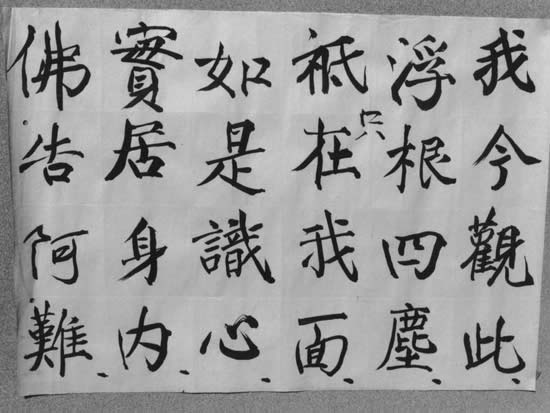 我今觀此、
浮根四塵、
祇在我面、
只
如是識心、
實居身内、
佛告阿難、